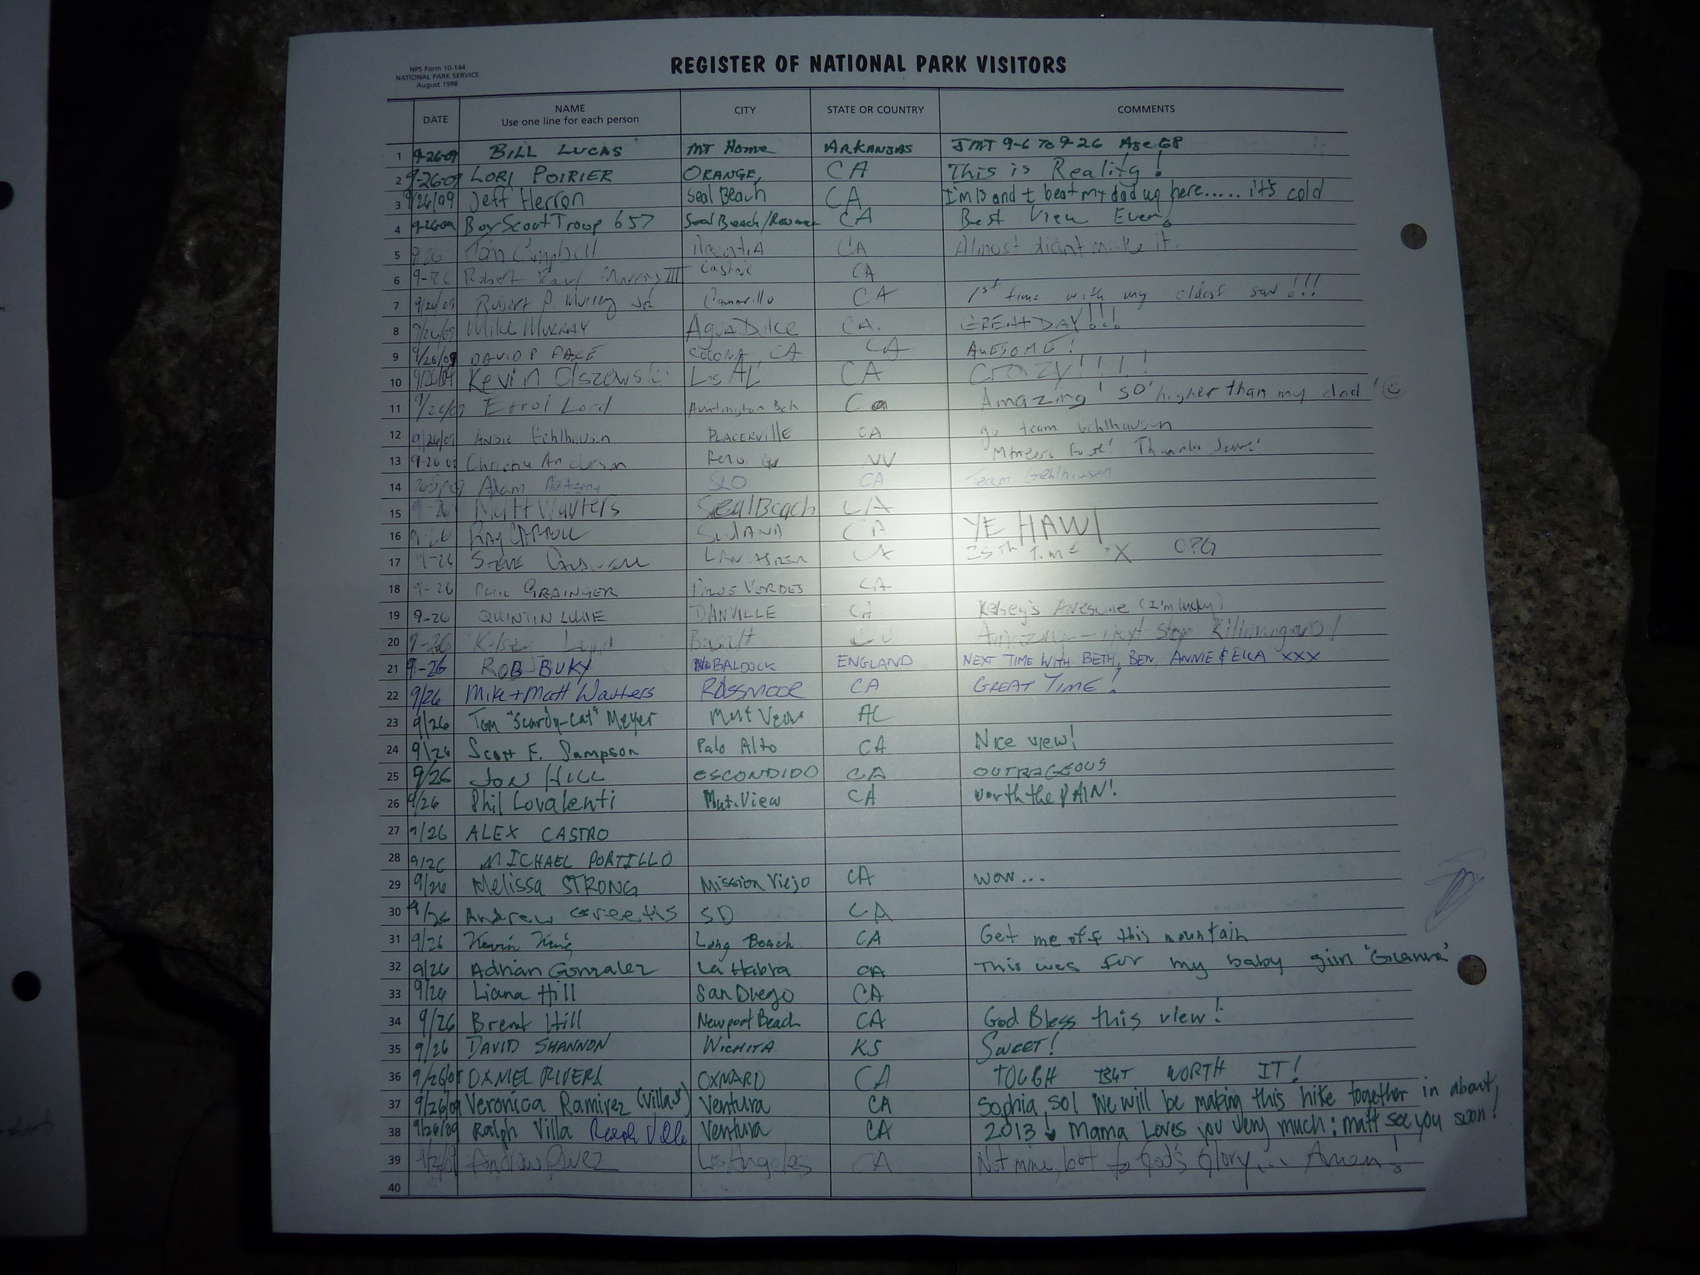 NPS Form 10-144
NATIONAL PARK SERVICE
August 1998
REGISTER OF NATIONAL PARK VISITORS
DATE NAME CITY STATE OR COUNTRY COMMENTS
Use one line for each person
1 9-26-09 BILL LUCAS MT Home ARKANSAS JMT 9-6 TO 9-26 Age 68
2 9-26-09 LORI POIRIER ORANGE, CA This is Reality!
3 9/26/09 Jeff Herron Seal Beach CA I'm 13 and I beat my dad up here...... it's cold
4 9-26-09 Boy Scout Troop 657 Seal Beach/ CA Best View Ever!
5 9-26 CA Almost didnt make it.
6 9-26 Robert III Castaic CA
7 9/26/09 Robert P. Camarillo CA 1st time with my oldest son!!!
8 9/26/09 Mike MURRAY Agua Dulce CA. GREAT DAY!!!
9 9/26/09 DAVID P PACE CA CA AWESOME!
10 9/26/09 Kevin Olszewski Los Al CA Crazy!!!!!
11 9/26/09 Errol Lord Huntington Bch Ca Amazing! so higher than my dad!
12 9/26/09 PLACERVILLE CA go team
13 9-26-09 Anderson NV
14 Adam SLO CA Team
15 9-26 Matt Watters Seal Beach CA
16 9-26 Ray CARROLL CA YE HAW!
17 9-26 STEVE
18 9-26 GRAINGER VERDES CA
19 9-26 QUINTIN DANVILLE CA Kelsey's Awesome (I'm lucky)
20 9-26 Basalt CO Amazing - next stop Kilimanjaro!
21 9-26 ROB BUKY BALDOCK ENGLAND NEXT TIME WITH BETH, BEN, ANNIE & ELLA XXX
22 9/26 Mike + Matt Watters ROSSMOOR CA GREAT TIME!
23 9/26 Tom "Scardy-Cat" Meyer Mnt View
24 9/26 Scott F. Sampson Palo Alto CA Nice view!
25 9/26 JON HILL ESCONDIDO CA OUTRAGEOUS
26 9/26 Phil Lovalenti Mut. View CA Worth the PAIN!
27 9/26 ALEX CASTRO
28 9/26 MICHAEL PORTILLO
29 9/26 Melissa STRONG Mission Viejo CA wow...
30 9/26 Andrew SD CA
31 9/26 Kevin King Long Beach CA Get me off this mountain
32 9/26 Adrian Gonzalez La Habra CA This was for my baby girl
33 9/26 Liana Hill San Diego CA
34 9/26 Brent Hill Newport Beach CA God Bless this view!
35 9/26 DAVID SHANNON WICHITA KS SWEET!
36 9/26/09 DANIEL RIVERA OXNARD CA TOUGH BUT WORTH IT!
37 9/26/09 Veronica Ramirez (Villa) Ventura CA Sophia, Sol We will be making this hike together in about,
38 9/26/09 Ralph Villa Ventura CA 2013 Mama Loves you very much; matt see you soon!
39 Los Angeles CA Not mine, but to God's Glory... Amen!
40